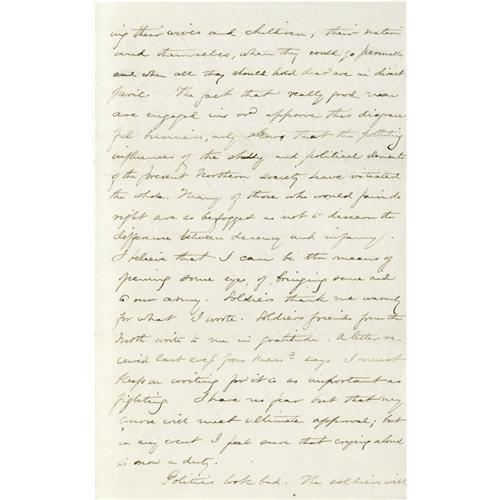 ing their wives and children, their nation
and themselves, when they could go personally
and when all they should hold dear are in direct
peril. The fact that really good men
are engaged in or approve this disgrace
ful business, only shows that the polluting
influences of the shoddy and political elements
of the present Northern society have vitiated
the whole. Many of those who would fain do
right are so befogged as not to discern the
difference between decency and infamy.
I believe that I can be the means of
opening some eyes, of bringing some aid
to our army. Soldiers thank me warmly
for what I wrote. Soldiers friends from the
North write to me in gratitude. A letter re-
ceived last eveg from Massts says I must
keep on writing for it is as important as
fighting. I have no fear but that my
course will meet ultimate approval; but
in any event I feel sure that crying aloud
is now a duty.
Politics look bad. The soldiers will